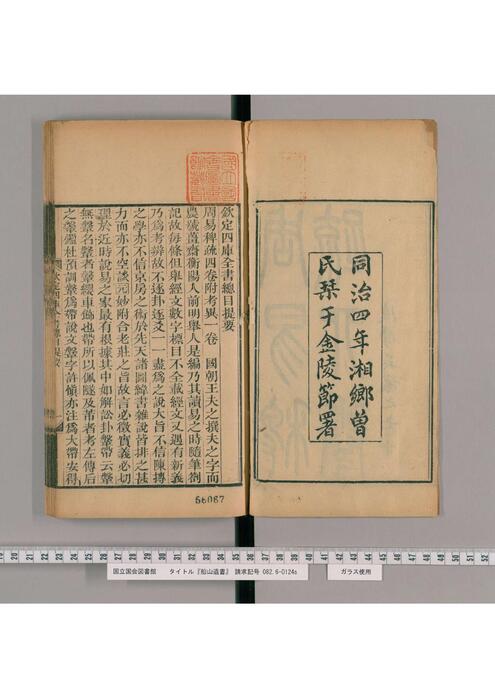 同治四年湘鄉曾
氏栞于金陵節署
欽定四庫全書總目提要
周易稗疏四卷附考異一卷　國朝王夫之撰夫之字而
農號薑齋衡陽人前明舉人是編乃其讀易之時隨筆劄
記故每條但舉經文數字標目不全載經文又遇有新義
乃爲考辨故不逐卦逐爻一一盡爲之說大旨不信陳摶
之學亦不信京房之術於先天諸圖緯書雜說皆排之甚
力而亦不空談元妙附合老莊之旨故言必徵實義必切
理於近時說易之家最有根據其中如解訟卦鞶帶云鞶
無鞶名鞶者車飾也帶所以佩及芾者考左傳后
之鞶鑑杜預謂鞶爲帶說文鞶字許愼亦注爲大帶安得
56087
19 20 21 22 23 24 25 26 27 28 29 30 31 32 33 34 35 36 37 38 39 40 41 42 43 44 45 46 47 48 49 50 51 52
国立国会図書館　タイトル『船山遺書』　請求記号 082.6-O124s
ガラス使用